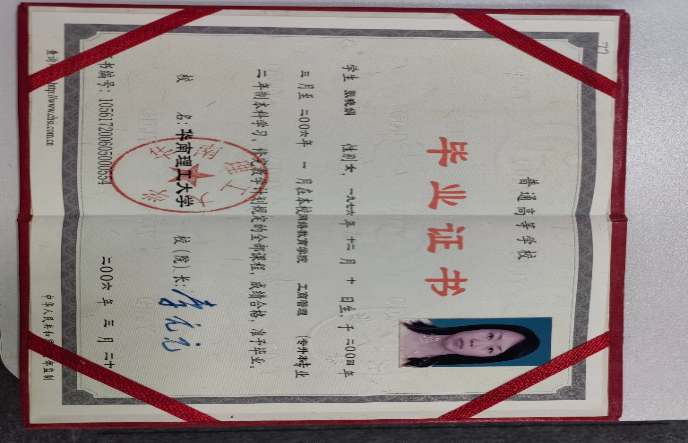 普通高等学校
毕业证书
学生 张晓娟 性别女，一九七六年 十二月 十 日生，于 二〇〇四年
三 月至 二〇〇六年 一 月在本校网络教育学院 工商管理 (专升本)专业
二 年制本科学习，修完教学计划规定的全部课程，成绩合格，准予毕业。
校 名：华南理工大学 校（院）长：李元元
书编号：105617200605000554
二〇〇六 年 三 月 二十
http://www.chsi.com.cn
中华人民共和
监制